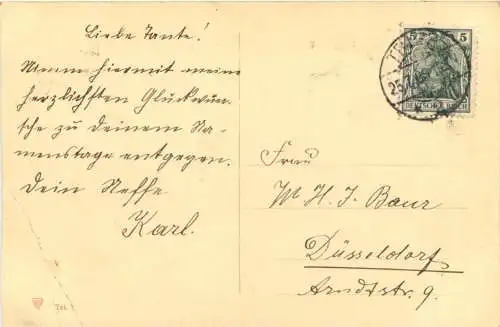 Liebe Tante!
Nimm hiermit meine
herzlichsten Glückwün-
sche zu deinem Na-
menstage entgegen.
Dein Neffe
Karl.
5 5
DEUTSCHES REICH
Frau
W. H. J. Baur
Düsseldorf
Arndtstr. 9.